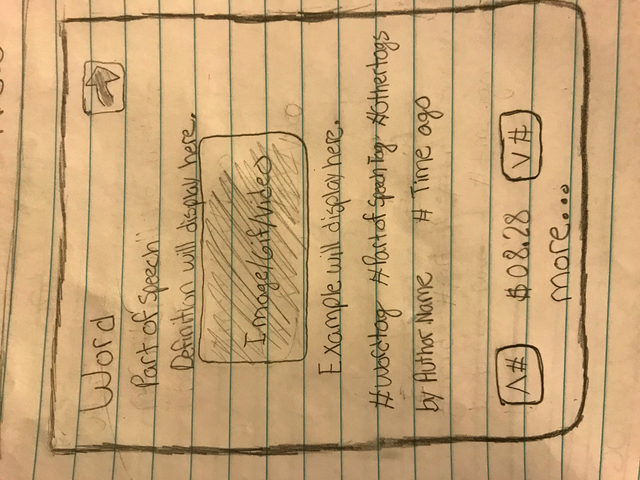 Word
Part of Speech
Definition will display here.
Image/Gif/Video
Example will display here.
#WordTag #Part of Speech Tag #Othertags
by Author Name # Time ago
^# $08.28 v#
more...